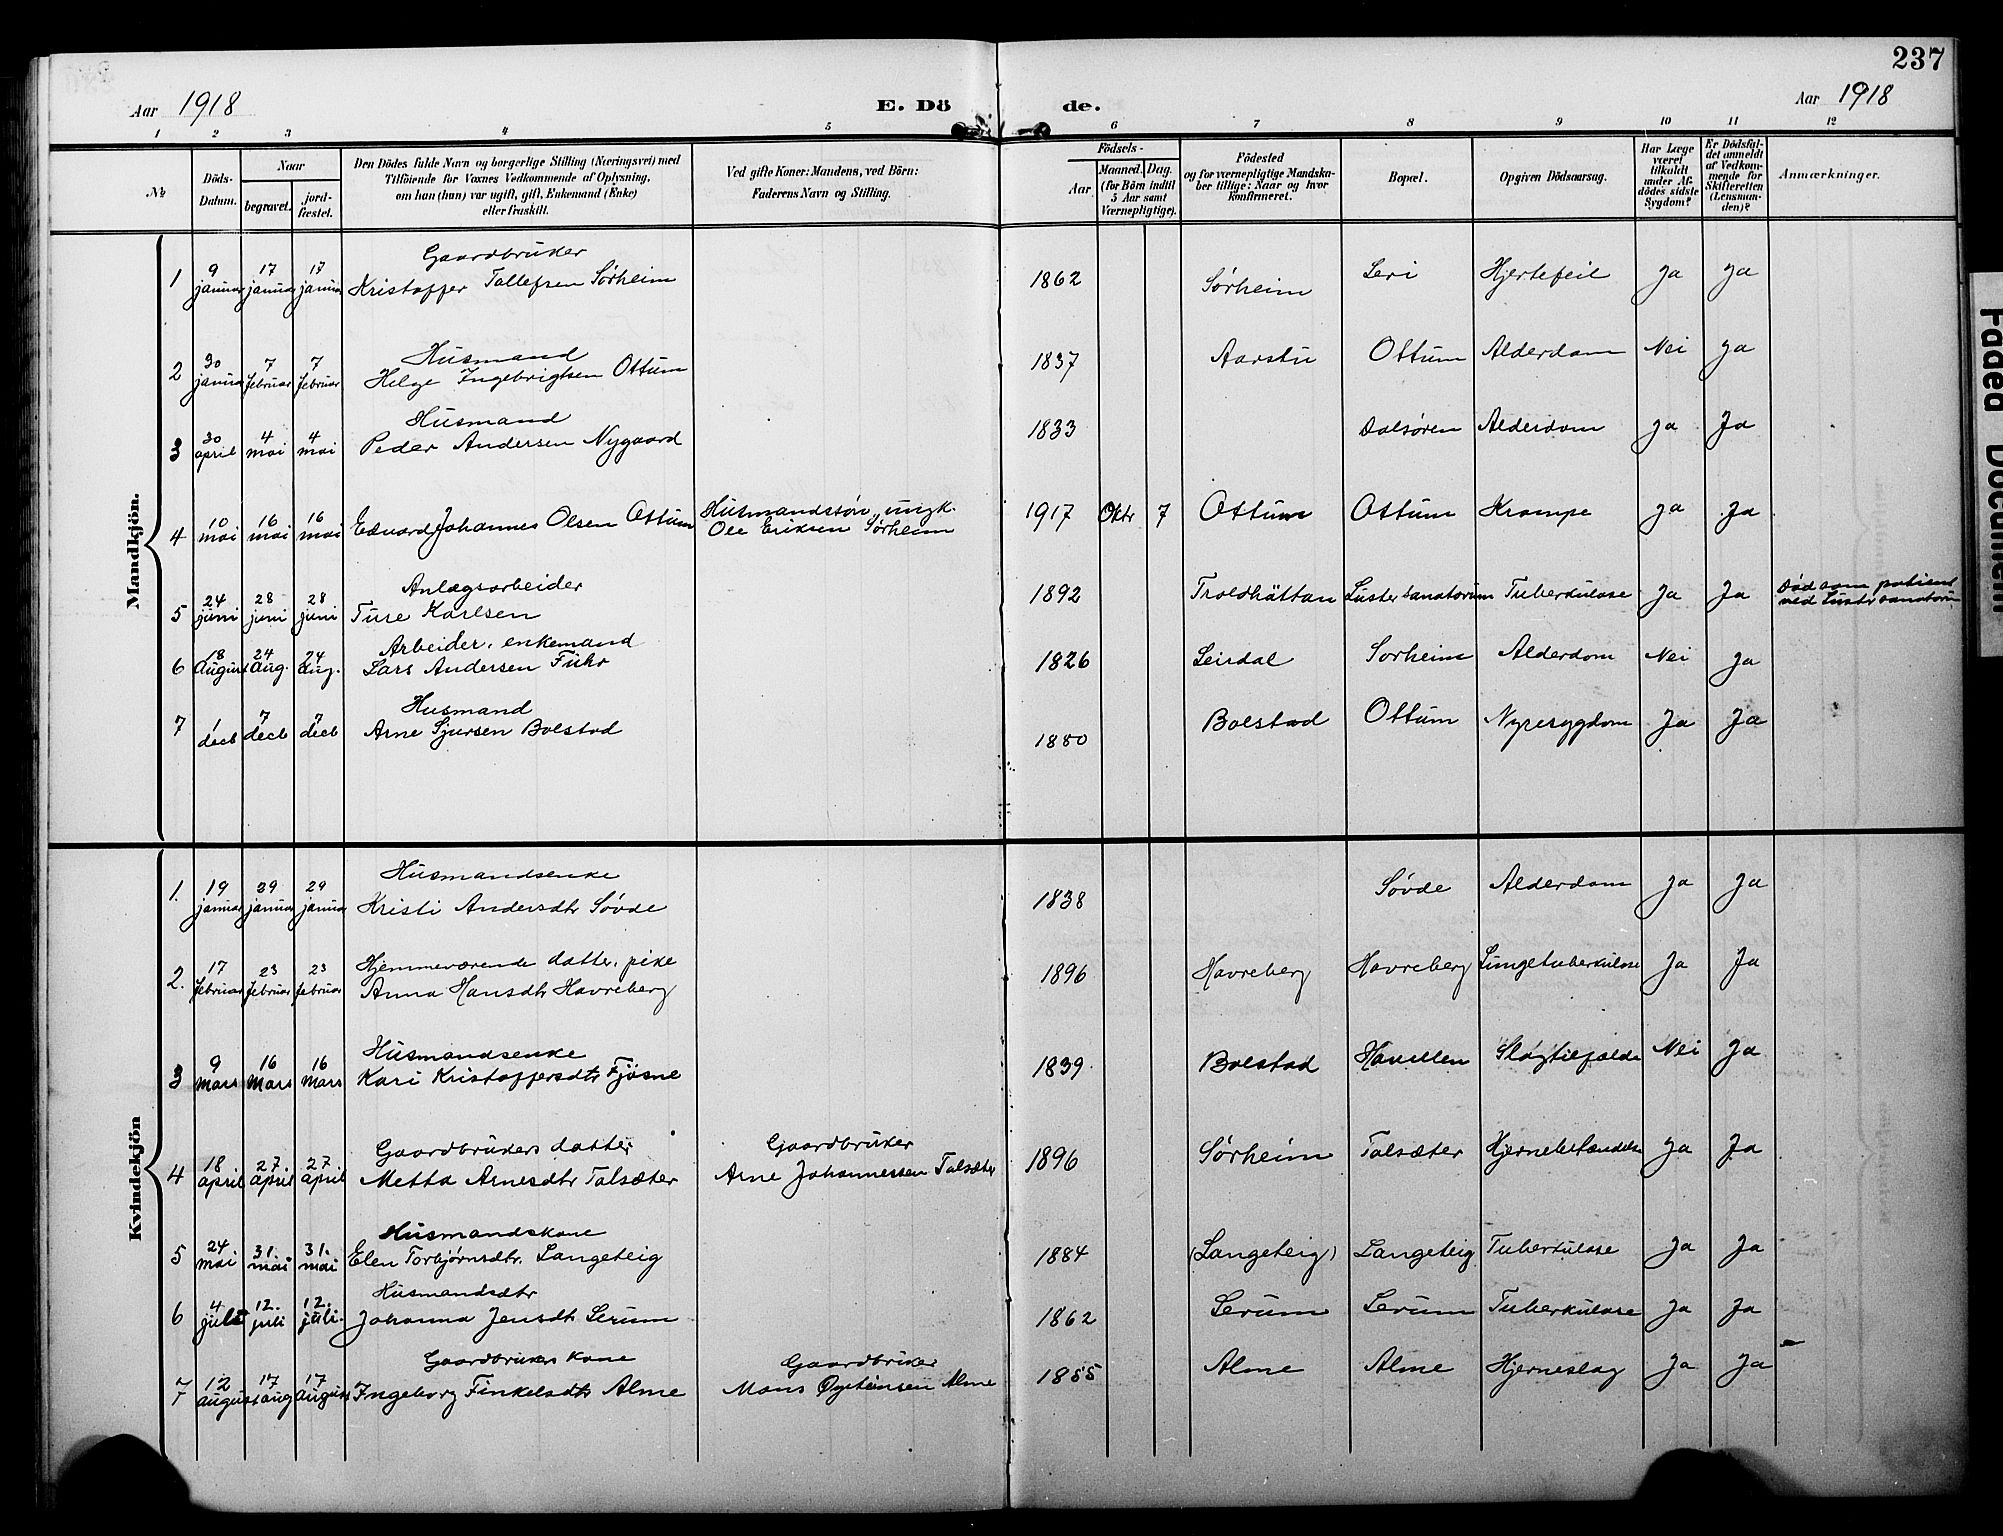 237
Aar 1918 E. Dö de. Aar 1918
1 2 3 4 5 6 7 8 9 10 11 12
№ Döds-Datum. Naar begravet. jord-fæstet. Den Dödes fulde Navn og borgerlige Stilling (Næringsvei) med Tilföiende for Voxnes Vedkommende af Oplysning, om han (hun) var ugift, gift, Enkemand (Enke) eller fraskilt. Ved gifte Koner: Mandens, ved Börn: Faderens Navn og Stilling. Födsels- Aar Maaned. Dag. (for Börn indtil 5 Aar samt Værnepligtige). Födested og for værnepligtige Mandskaber tillige: Naar og hvor konfirmeret. Bopæl. Opgiven Dödsaarsag. Har Læge været tilkaldt under Afdödes sidste Sygdom? Er Dödsfaldet anmeldt af Vedkommende for Skifteretten (Lensmanden)? Anmærkninger.
Mandkjön.
1 9 januar 17 januar 17 januar Gaardbruker Kristoffer Tollefsen Sørheim 1862 Sørheim Leri Hjertefeil Ja Ja
2 30 januar 7 februar 7 februar Husmand Helge Ingebrigtsen Ottum 1837 Aarstu Ottum Alderdom Nei Ja
3 30 april 4 mai 4 mai Husmand Peder Andersen Nygaard 1833 Dalsøren Alderdom Ja Ja
4 10 mai 16 mai 16 mai Edvard Johannes Olsen Ottum Husmandssøn, ungk. Ole Eriksen Sørheim 1917 Oktr 7 Ottum Ottum Krampe Ja Ja
5 24 juni 28 juni 28 juni Anlægsarbeider Ture Karlsen 1892 Troldhättan Luster sanatorium Tuberkulose Ja Ja Död som patient ved Luster sanatorium
6 18 August 24 Aug. 24 Aug. Arbeider, enkemand Lars Andersen Fuhr 1826 Leirdal Sørheim Alderdom Nei Ja
7 1 decb 7 decb 7 decb Husmand Arne Sjursen Bolstad 1880 Bolstad Ottum Nyresygdom Ja Ja
Kvindekjön
1. 19 januar 29 januar 29 januar Husmandsenke Kristi Andersdtr Søvde 1838 Søvde Alderdom Ja Ja
2. 17 februar 23 februar 23 februar Hjemmeværende datter, pike Anna Hansdtr Havreberg 1896 Havreberg Havreberg Lungetuberkulose Ja Ja
3 9 Mars 16 Mars 16 Mars Husmandsenke Kari Kristoffersdtr Fjøsne 1839 Bolstad Slagtilfælde Nei Ja
4 18 april 27 april 27 april Gaardbrukers datter Metta Arnesdtr Talsæter Gaardbruker Arne Johannessen Talsæter 1896 Sørheim Talsæter Hjernebetændelse Ja Ja
5 24 mai 31. mai 31. mai Husmandskone Elen Torbjørnsdtr. Langeteig 1884 (Langeteig) Langeteig Tuberkulose Ja Ja
6 4 juli 12. juli 12. juli. Husmandsdtr Johanna Jensdtr Lerum 1862 Lerum Lerum Tuberkulose Ja Ja
7 12 august 17 aug 17 august Gaardbrukers kone Ingeborg Finkelsdtr Alme Gaardbruker Mons Øysteinsen Alme 1855 Alme Alme Hjerneslag Ja Ja
Faded Document